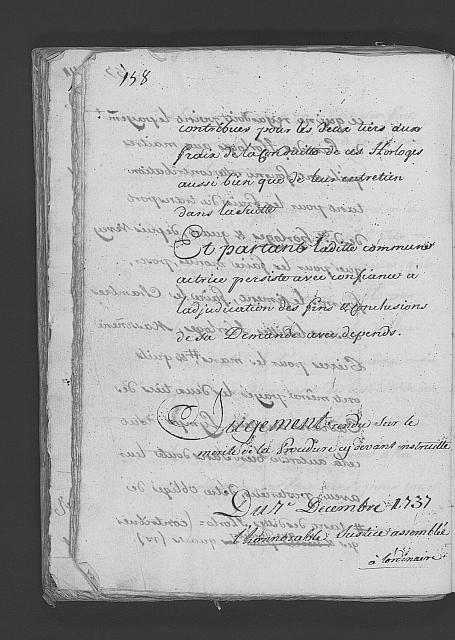 158
contribuer pour les deux tiers aux
fraix de la Conduitte de ces Horloges
aussi bien que de leur entretien
dans la suitte
Et partant Ladite commune
actrice persiste avec confiance à
ladjudication des fins & conclusions
de sa Demande avec depends.
Jugement rendu sur le
merite de la Procedure cy devant instruitte
Du 7e Decembre 1737
l'honnorable Justice assemblée
à l'ordinaire